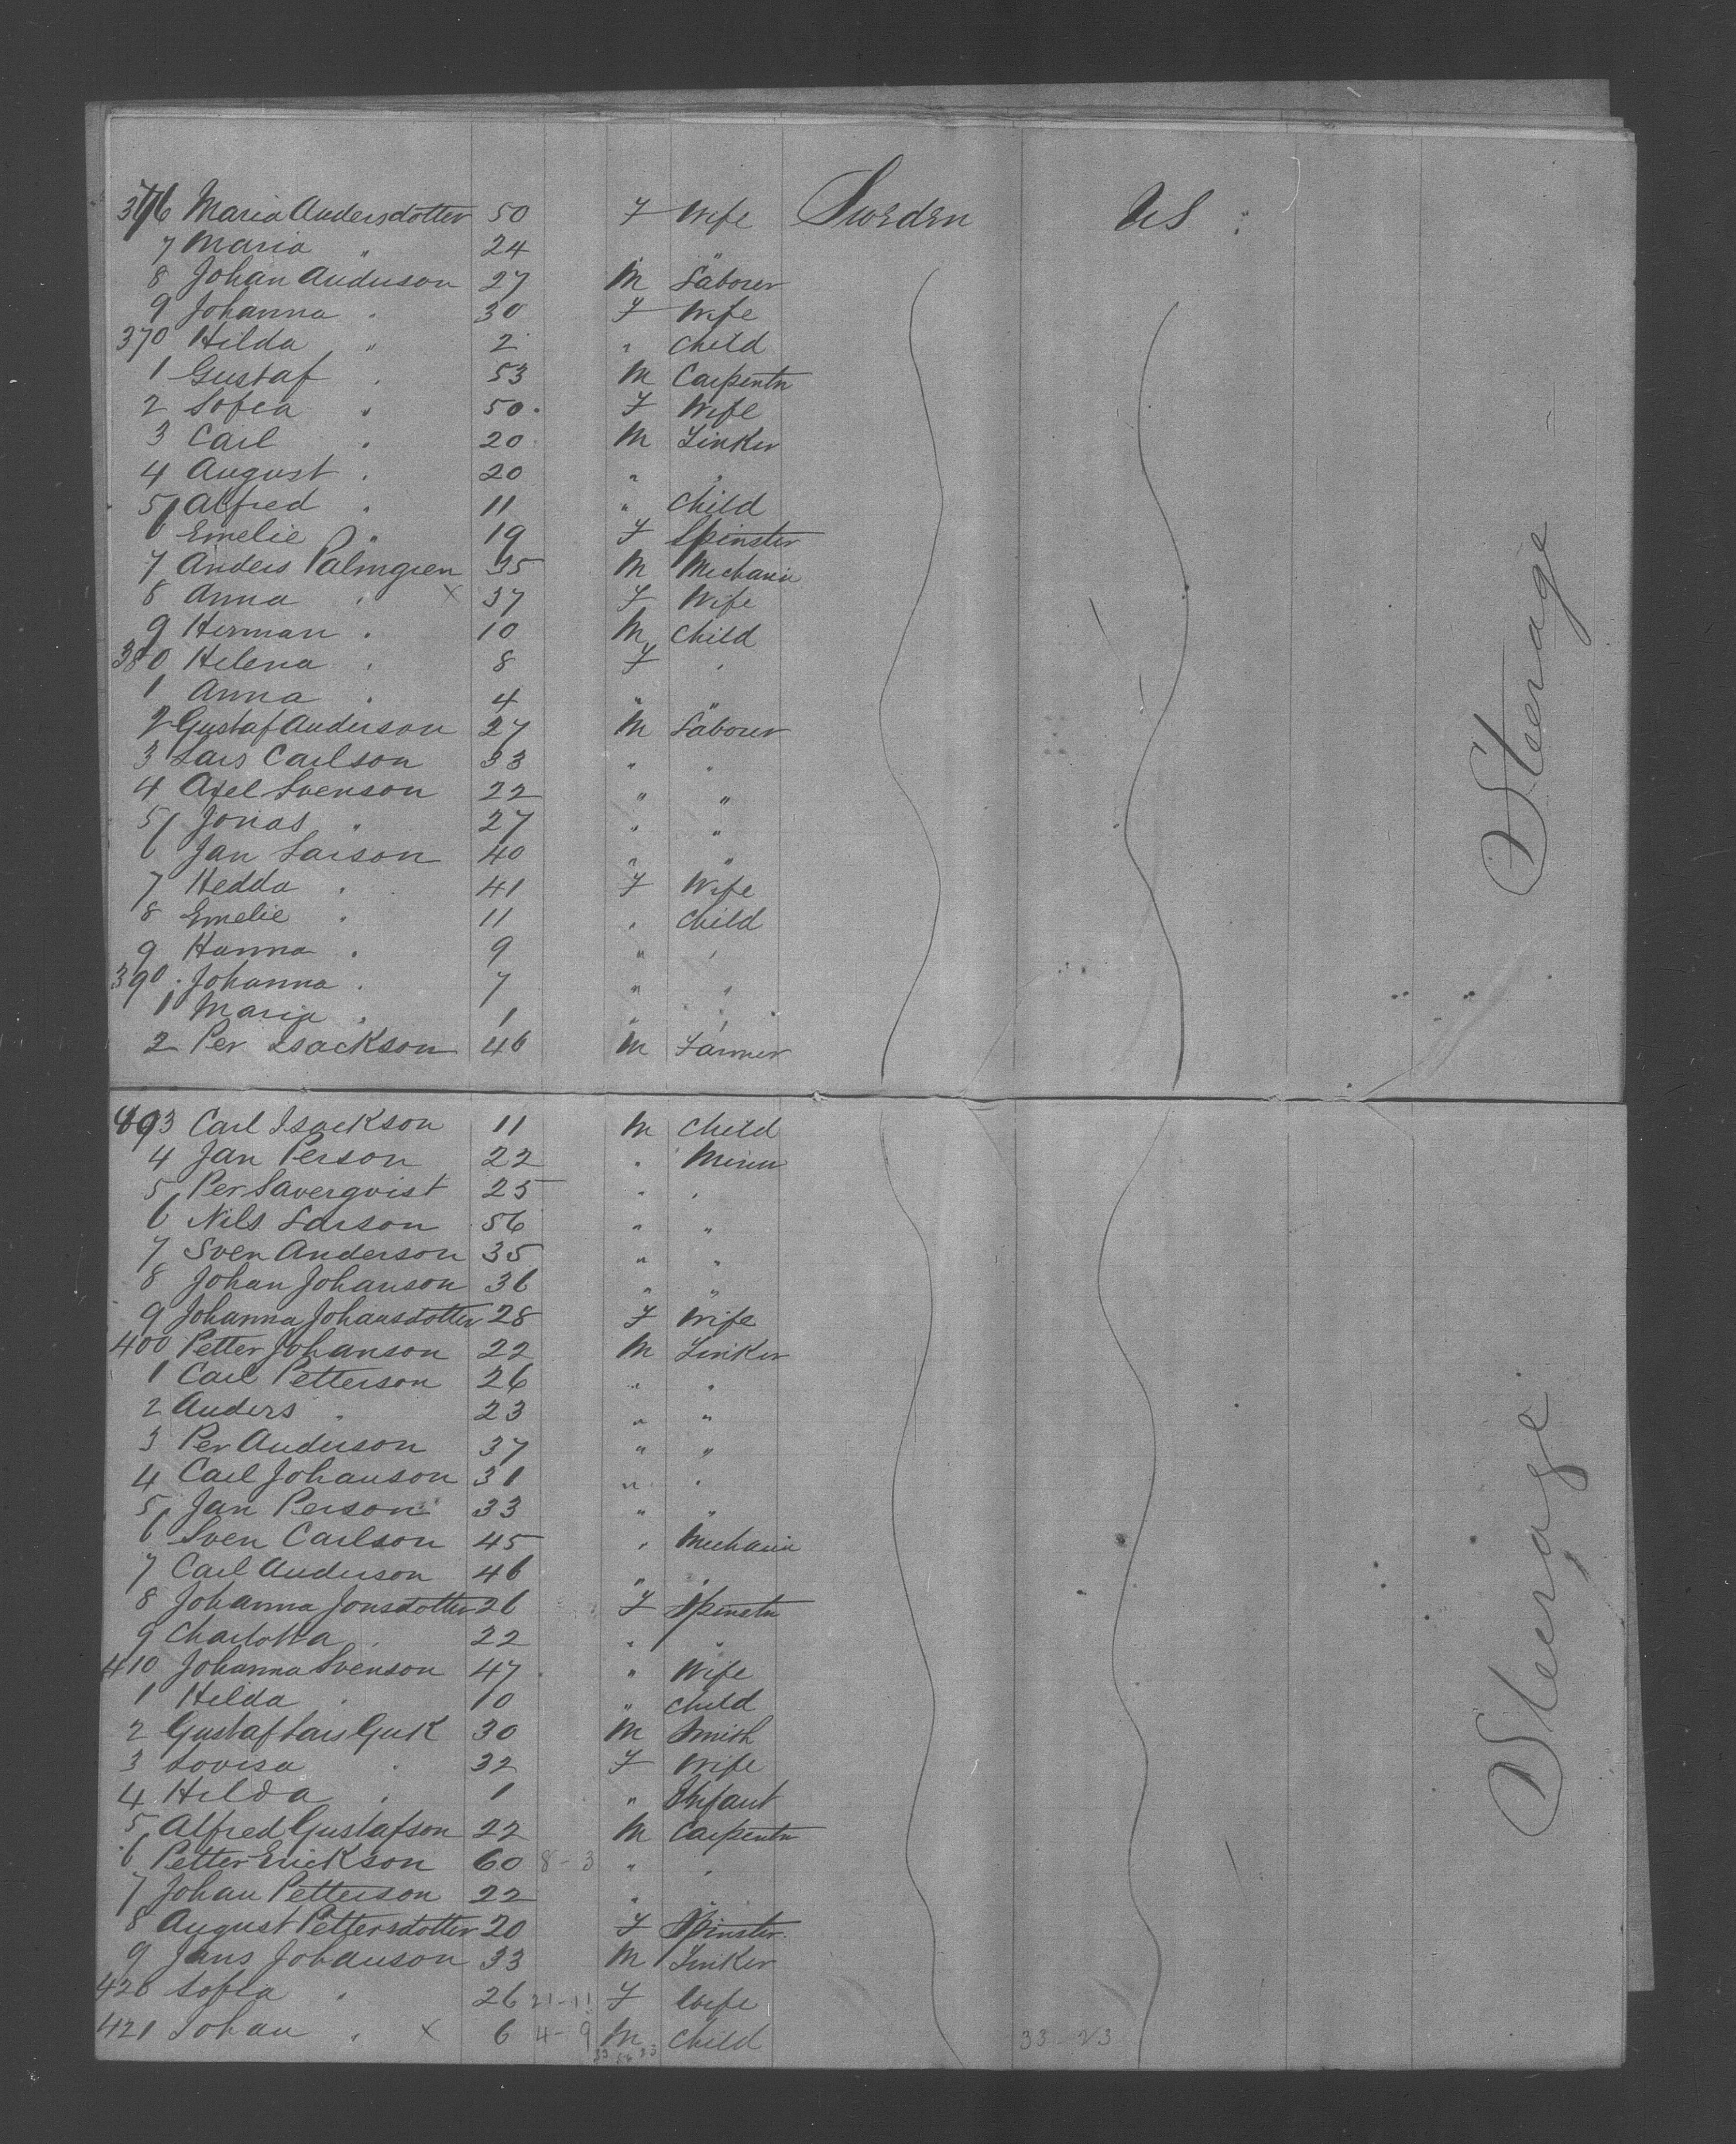 366 Maria Andersdotter 50 F Wife Sweden US
7 Maria " 24 "
8 Johan Anderson 27 M Laborer
9 Johanna " 30 F Wife
370 Hilda " 2 " Child
1 Gustaf " 53 M Carpenter
2 Sofia " 50 F Wife
3 Carl " 20 M Tinker
4 August " 20 " "
5 Alfred " 11 " Child
6 Emelie " 19 F Spinster
7 Anders Palmgren 35 M Mechanic
8 Anna " x 37 F Wife
9 Herman " 10 M Child
380 Helena " 8 F "
1 Anna " 4 " "
2 Gustaf Anderson 27 M Laborer
3 Lars Carlson 33 " "
4 Axel Svenson 22 " "
5 Jonas " 27 " "
6 Jan Larson 40 " "
7 Hedda " 41 F Wife
8 Emelie " 11 " Child
9 Hanna " 9 " "
390 Johanna " 7 " "
1 Maria " 1 " "
2 Per Isackson 46 M Farmer
Steerage
393 Carl Isackson 11 M Child
4 Jan Person 22 " Miner
5 Per Saverqvist 25 " "
6 Nils Larson 56 " "
7 Sven Anderson 35 " "
8 Johan Johanson 36 " "
9 Johanna Johansdotter 28 F Wife
400 Petter Johanson 22 M Tinker
1 Carl Petterson 26 " "
2 Anders " 23 " "
3 Per Anderson 37 " "
4 Carl Johanson 31 " "
5 Jan Person 33 " "
6 Sven Carlson 45 " Mechanic
7 Carl Anderson 46 " "
8 Johanna Jonsdotter 26 F Spinster
9 Charlotta " 22 " "
410 Johanna Svenson 47 " Wife
1 Hilda " 10 " Child
2 Gustaf Lars 30 M Smith
3 Lovisa " 32 F Wife
4 Hilda " 1 " Infant
5 Alfred Gustafson 22 M Carpenter
6 Petter Erickson 60 8-3 " "
7 Johan Petterson 22 " "
8 August Pettersdotter 20 F Spinster
9 Jans Johanson 33 M Tinker
420 Sofia " 26 21-11 F Wife
421 Johan " x 6 4-9 M Child 33-23
Steerage